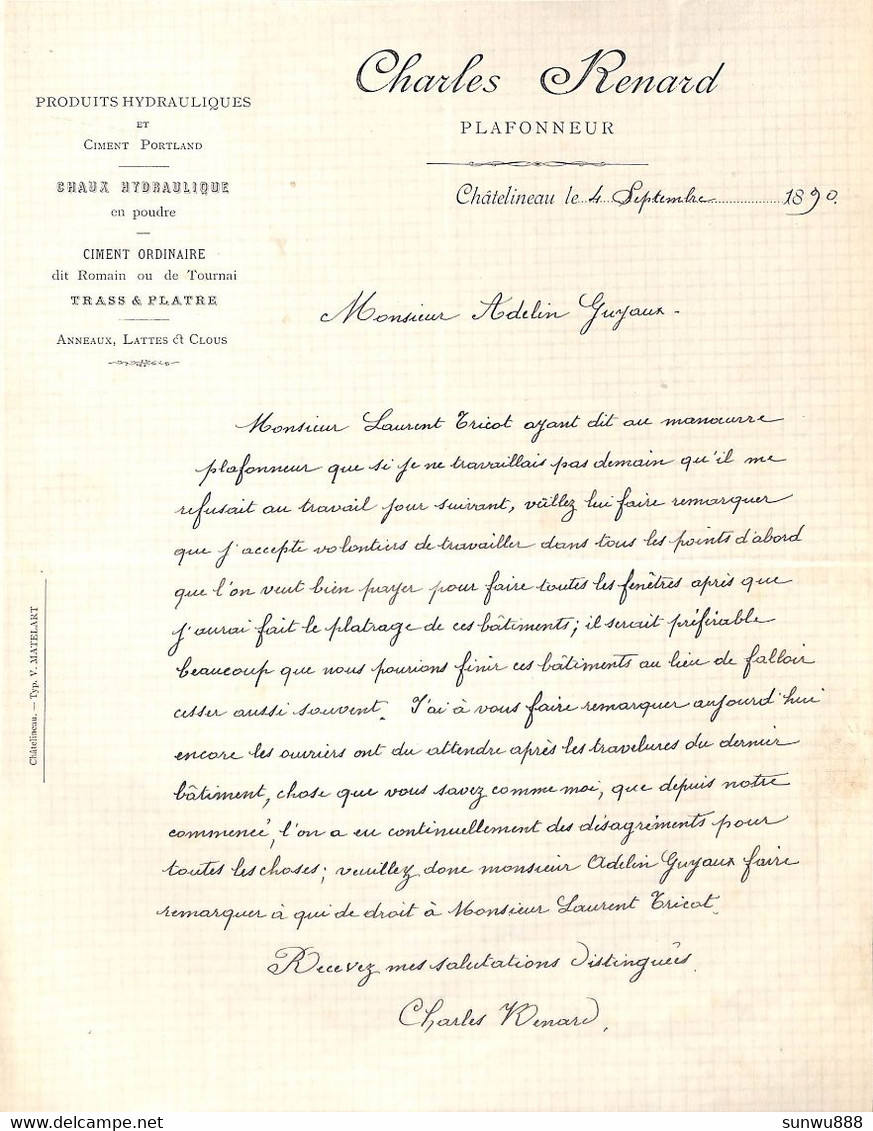 Charles Renard
PLAFONNEUR
PRODUITS HYDRAULIQUES
ET
CIMENT PORTLAND
CHAUX HYDRAULIQUE
en poudre
CIMENT ORDINAIRE
dit Romain ou de Tournai
TRASS & PLATRE
ANNEAUX, LATTES et CLOUS
Châtelineau le 4 Septembre 1890.
Monsieur Adelin Guyaux.
Monsieur Laurent Tricot ayant dit au manœuvre
plafonneur que si je ne travaillais pas demain qu'il me
refusait au travail jour suivant, veillez lui faire remarquer
que j'accepte volontiers de travailler dans tous les points d'abord
que l'on veut bien payer pour faire toutes les fenêtres après que
j'aurai fait le platrage de ces bâtiments; il serait préférable
beaucoup que nous pourions finir ces bâtiments au lieu de falloir
cesser aussi souvent. J'ai à vous faire remarquer aujourd'hui
encore les ouvriers ont du attendre après les travelures du dernier
bâtiment, chose que vous savez comme moi, que depuis notre
commencé, l'on a eu continuellement des désagréments pour
toutes les choses; veuillez donc monsieur Adelin Guyaux faire
remarquer à qui de droit à Monsieur Laurent Tricot.
Recevez mes salutations distinguées.
Charles Renard.
Châtelineau. — Typ. V. MATELART
delcampe.net
sunwu888